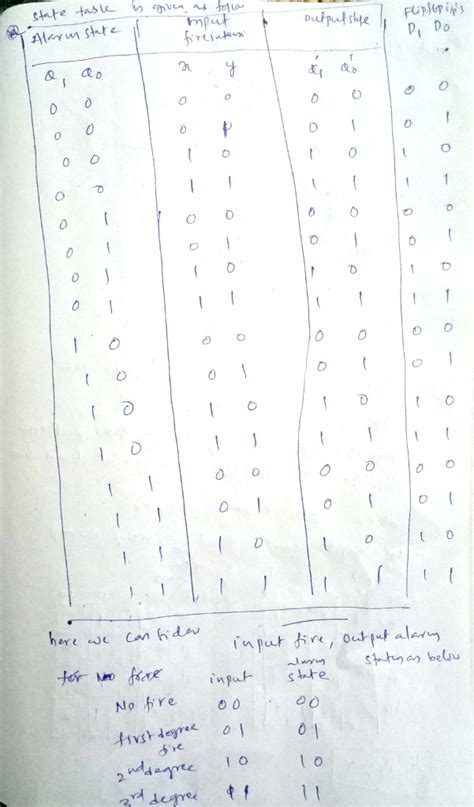 State table is given as follow
Alarm state Input fire intensi Output state Flipflop i/p's
Q1 Q0 x y Q1' Q0' D1 D0
0 0 0 0 0 0 0 0
0 0 0 1 0 1 0 1
0 0 1 0 1 0 1 0
0 0 1 1 1 1 1 1
0 1 0 0 0 0 0 0
0 1 0 1 0 1 0 1
0 1 1 0 1 0 1 0
0 1 1 1 1 1 1 1
1 0 0 0 0 0 0 0
1 0 0 1 0 1 0 1
1 0 1 0 1 0 1 0
1 0 1 1 1 1 1 1
1 1 0 0 0 0 0 0
1 1 0 1 0 1 0 1
1 1 1 0 1 0 1 0
1 1 1 1 1 1 1 1
here we consider input fire, output alarm
status as below
for No fire input alarm state
No fire 00 00
first degree fire 01 01
2nd degree 10 10
3rd degree 11 11